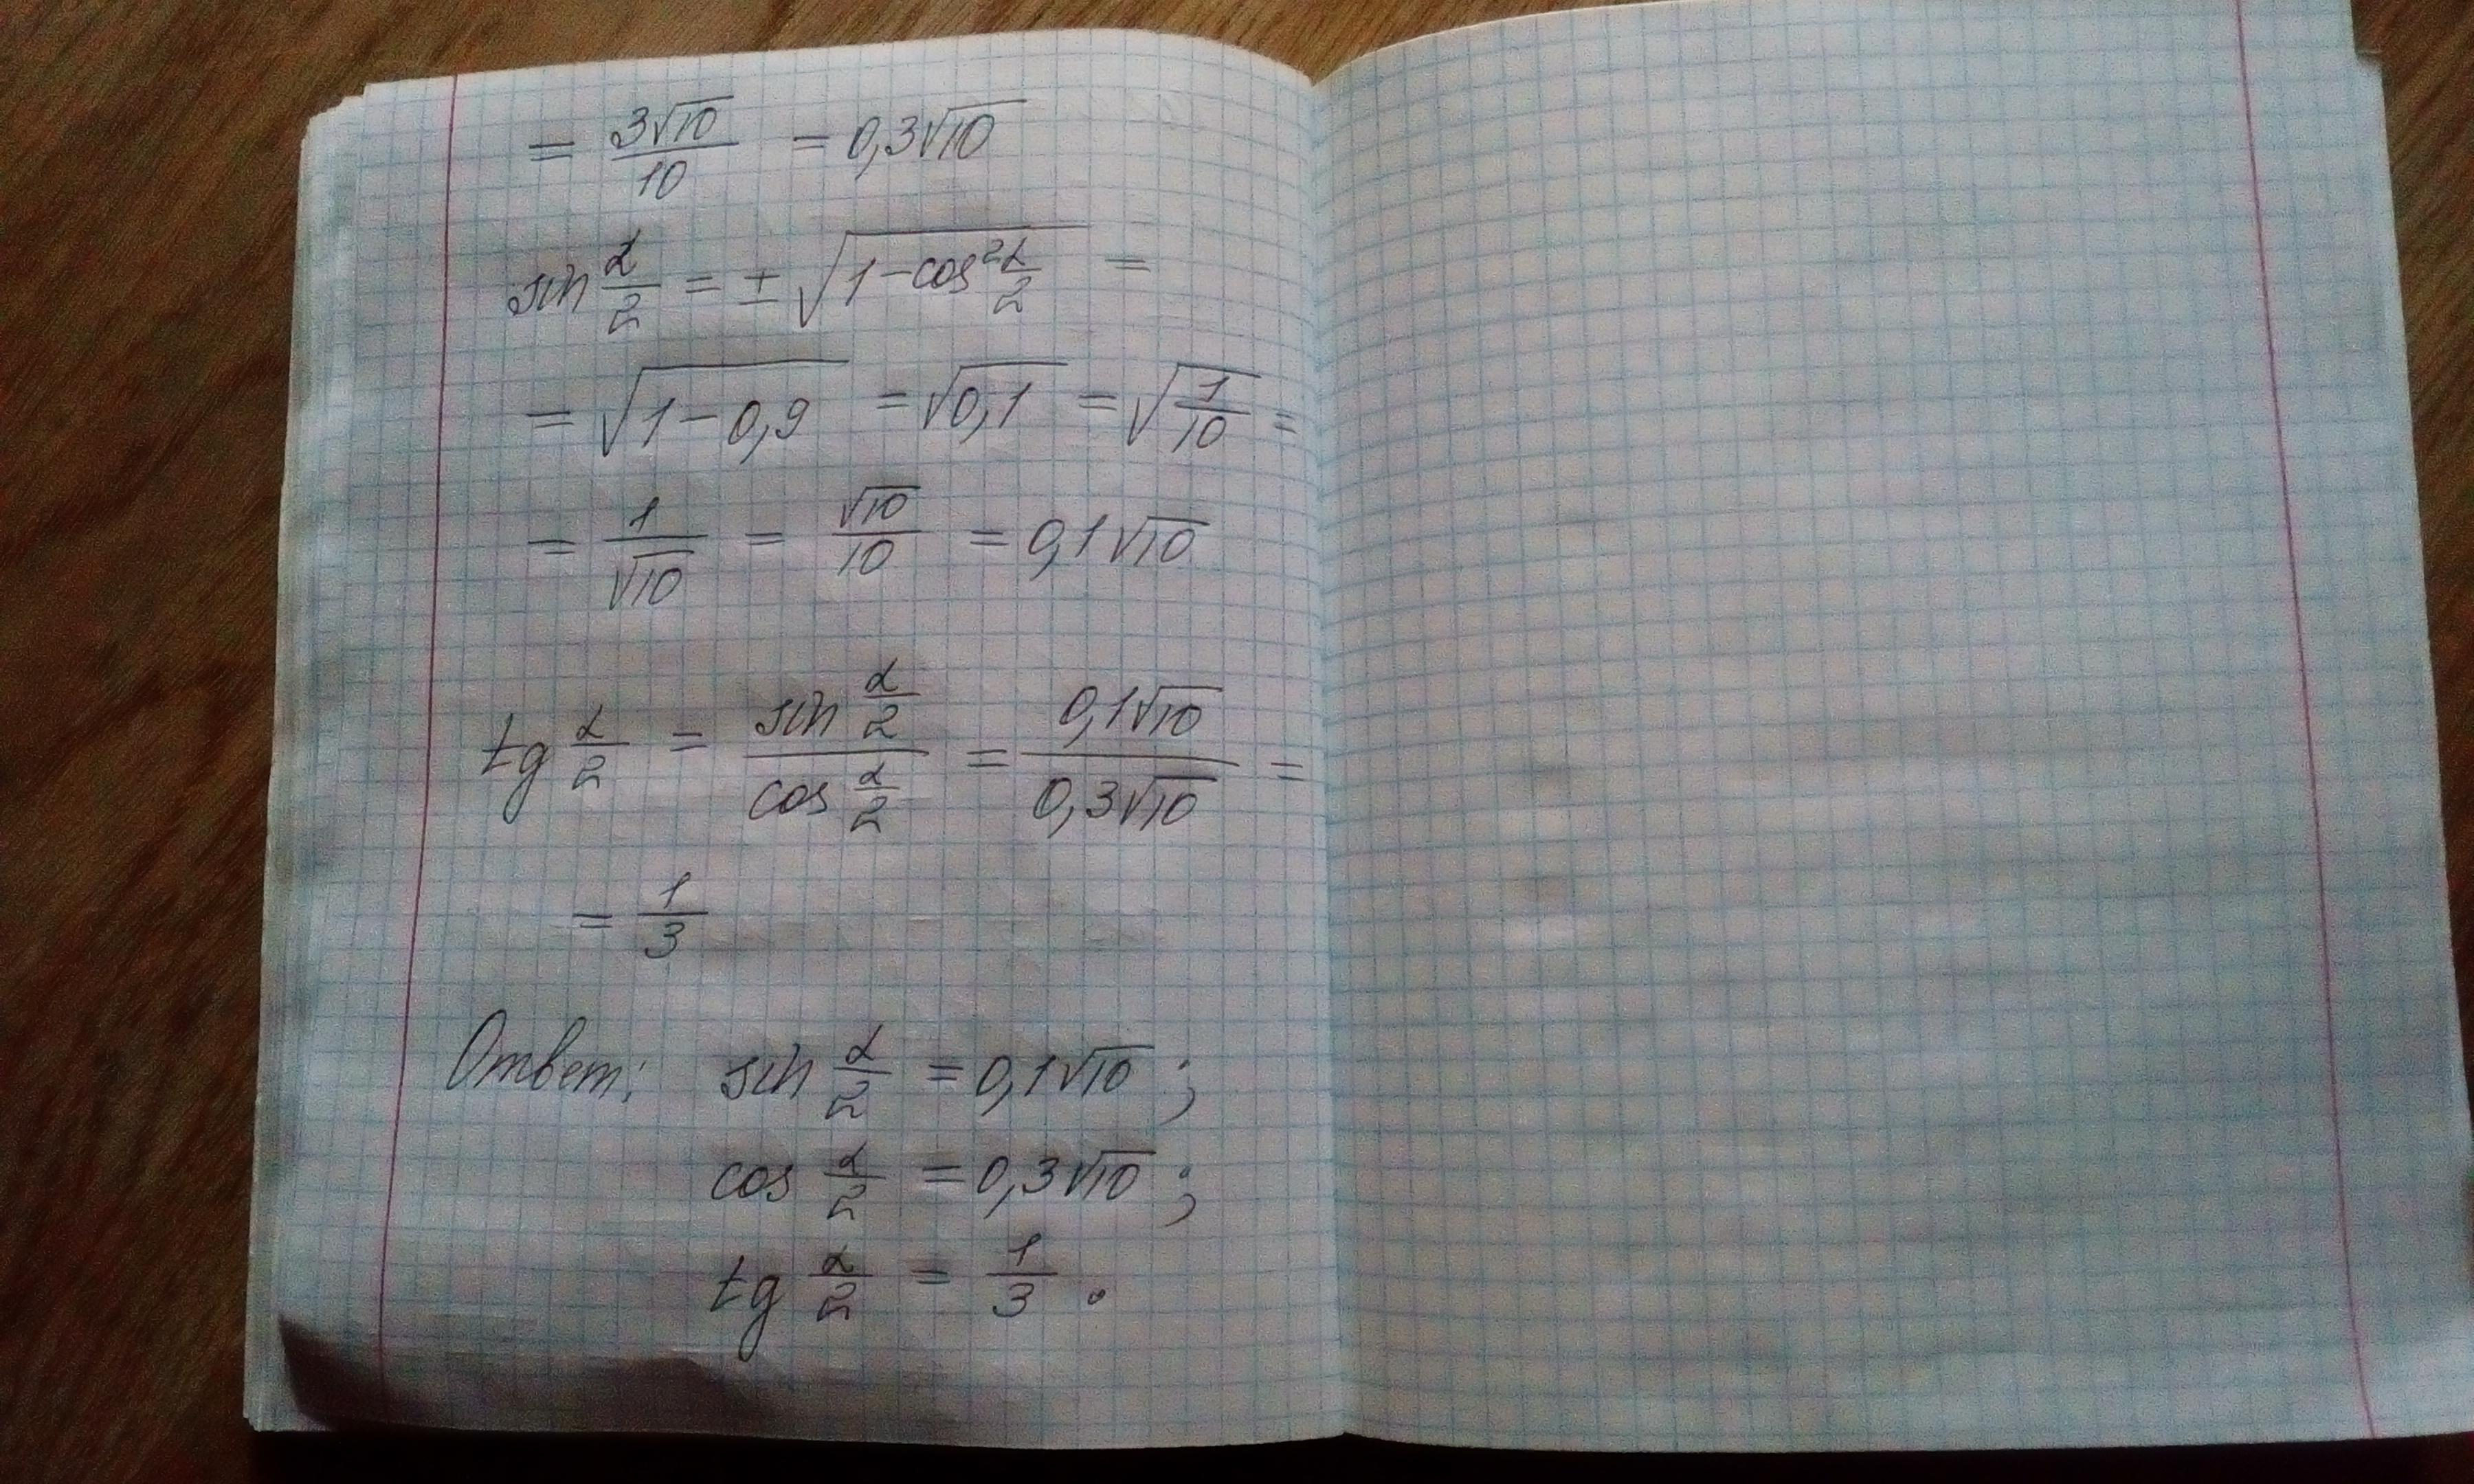 = 3√10/10 = 0,3√10
sin α/2 = ± √(1 - cos² α/2) =
= √(1 - 0,9) = √0,1 = √(1/10) =
= 1/√10 = √10/10 = 0,1√10
tg α/2 = (sin α/2)/(cos α/2) = 0,1√10/0,3√10 =
= 1/3
Ответ: sin α/2 = 0,1√10 ;
cos α/2 = 0,3√10 ;
tg α/2 = 1/3 .